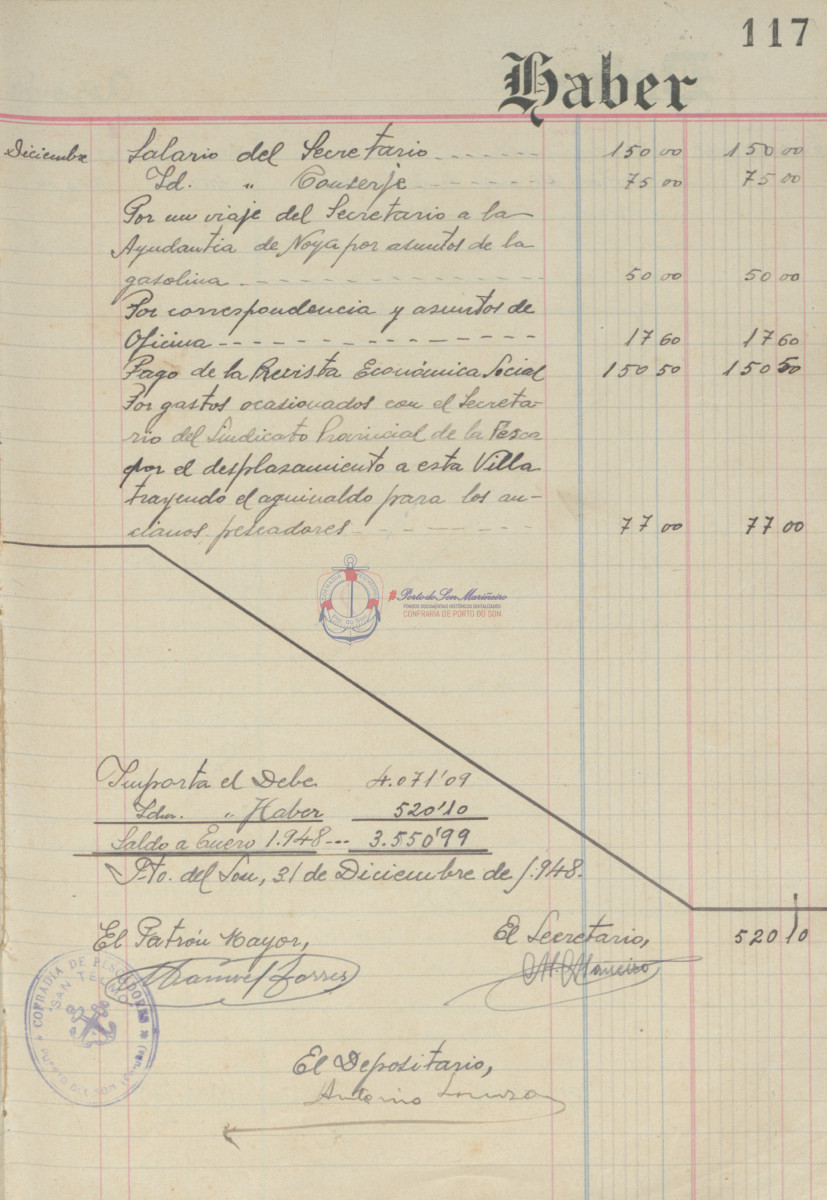 117
Haber
Diciembre Salario del Secretario 150 00 150 00
Id. " Conserje 75 00 75 00
Por un viaje del Secretario a la
Ayudantia de Noya por asuntos de la
gasolina 50 00 50 00
Por correspondencia y asuntos de
Oficina 17 60 17 60
Pago de la Revista Económica Social 150 50 150 50
Por gastos ocasionados con el Secreta-
rio del Sindicato Provincial de la Pesca
por el desplasamiento a esta Villa
trayendo el aguinaldo para los an-
cianos pescadores 77 00 77 00
Porto do Son Mariñeiro
FONDOS DOCUMENTAIS HISTÓRICOS DIXITALIZADOS
CONFRARÍA DE PORTO DO SON
Importa el Debe 4.071'09
Idm. " Haber 520'10
Saldo a Enero 1.948 3.550'99
Pto. del Son, 31 de Diciembre de 1.948.
El Patrón Mayor, El Secretario, 520 10
Manuel Torres
COFRADIA DE PESCADORES
"SAN TELMO"
PUERTO DEL SON
El Depositario,
Antonio